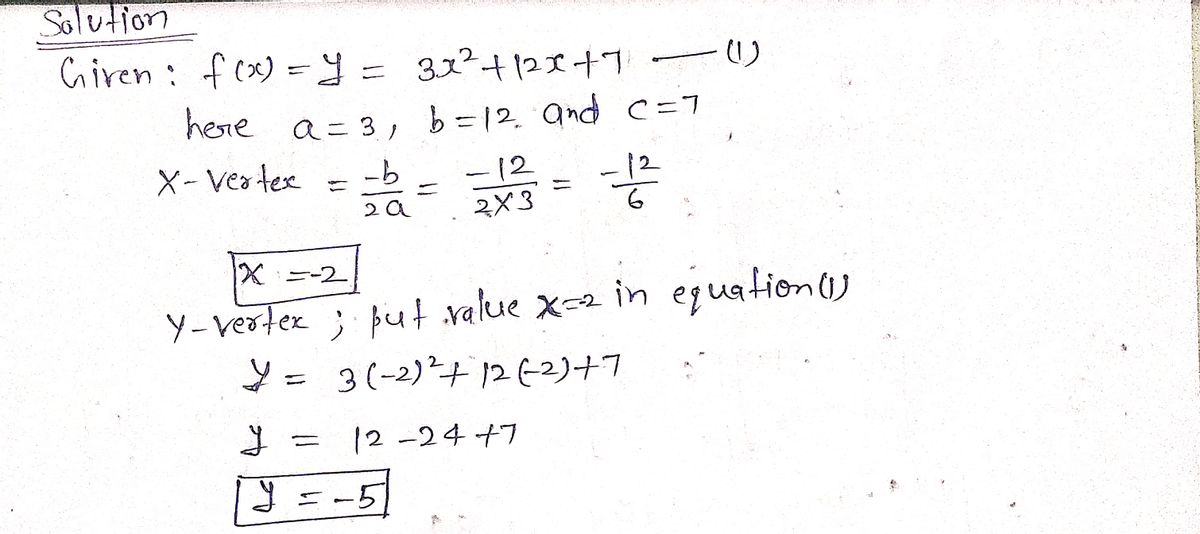 Solution
Given : f(x) = y = 3x² + 12x + 7 — (1)
here a = 3, b = 12. and c = 7
X-Vertex = -b/2a = -12/2×3 = -12/6
x = -2
Y-vertex ; put value x=-2 in equation (1)
y = 3(-2)² + 12(-2) + 7
y = 12 - 24 + 7
y = -5